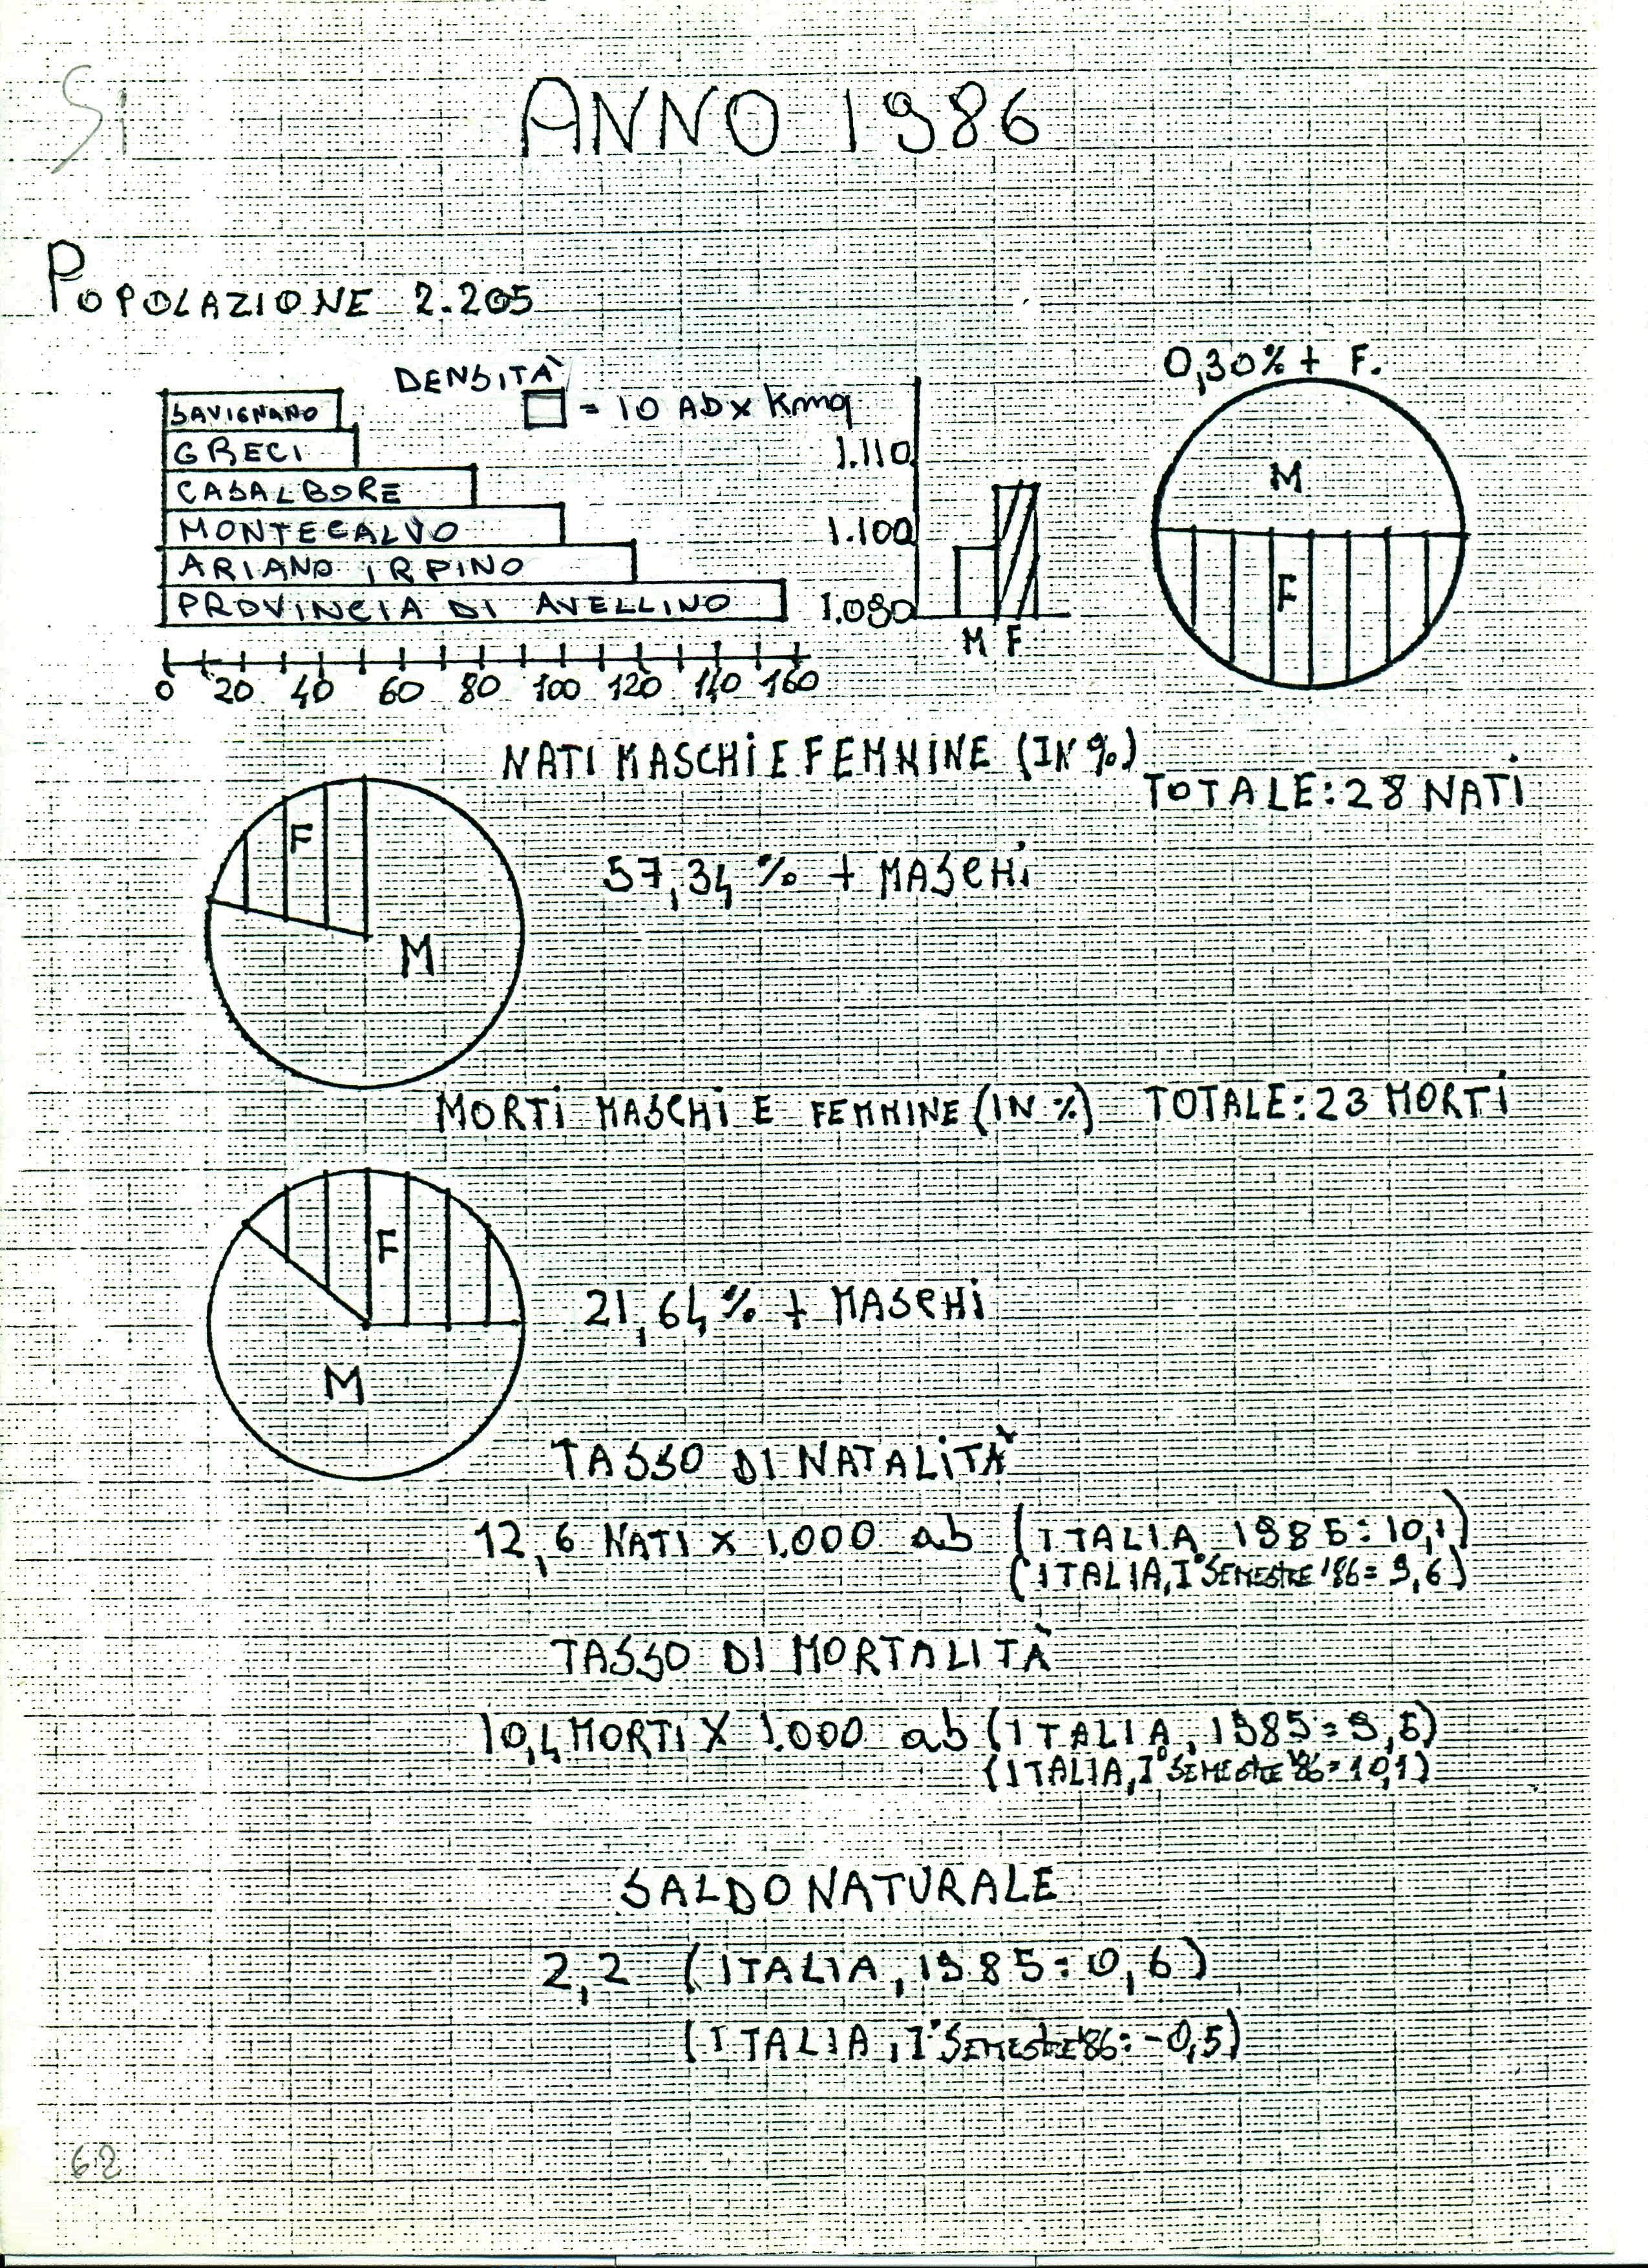 Si
ANNO 1986
POPOLAZIONE 2.205
DENSITÀ
= 10 Ab x Kmq
SAVIGNANO
GRECI
CASALBORE
MONTECALVO
ARIANO IRPINO
PROVINCIA DI AVELLINO
0 20 40 60 80 100 120 140 160
1.110
1.100
1.090
M F
0,30% + F.
M
F
NATI MASCHI E FEMMINE (IN %)
TOTALE: 28 NATI
F
M
57,34 % + MASCHI
MORTI MASCHI E FEMMINE (IN %) TOTALE: 23 MORTI
F
M
21,64 % + MASCHI
TASSO DI NATALITÀ
12,6 NATI X 1.000 ab (ITALIA 1985: 10,1)
(ITALIA, I° SEMESTRE '86= 9,6)
TASSO DI MORTALITÀ
10,4 MORTI X 1.000 ab (ITALIA, 1985= 9,5)
(ITALIA, I° SEMESTRE '86= 10,1)
SALDO NATURALE
2,2 (ITALIA, 1985: 0,6)
(ITALIA, I° SEMESTRE '86: -0,5)
62